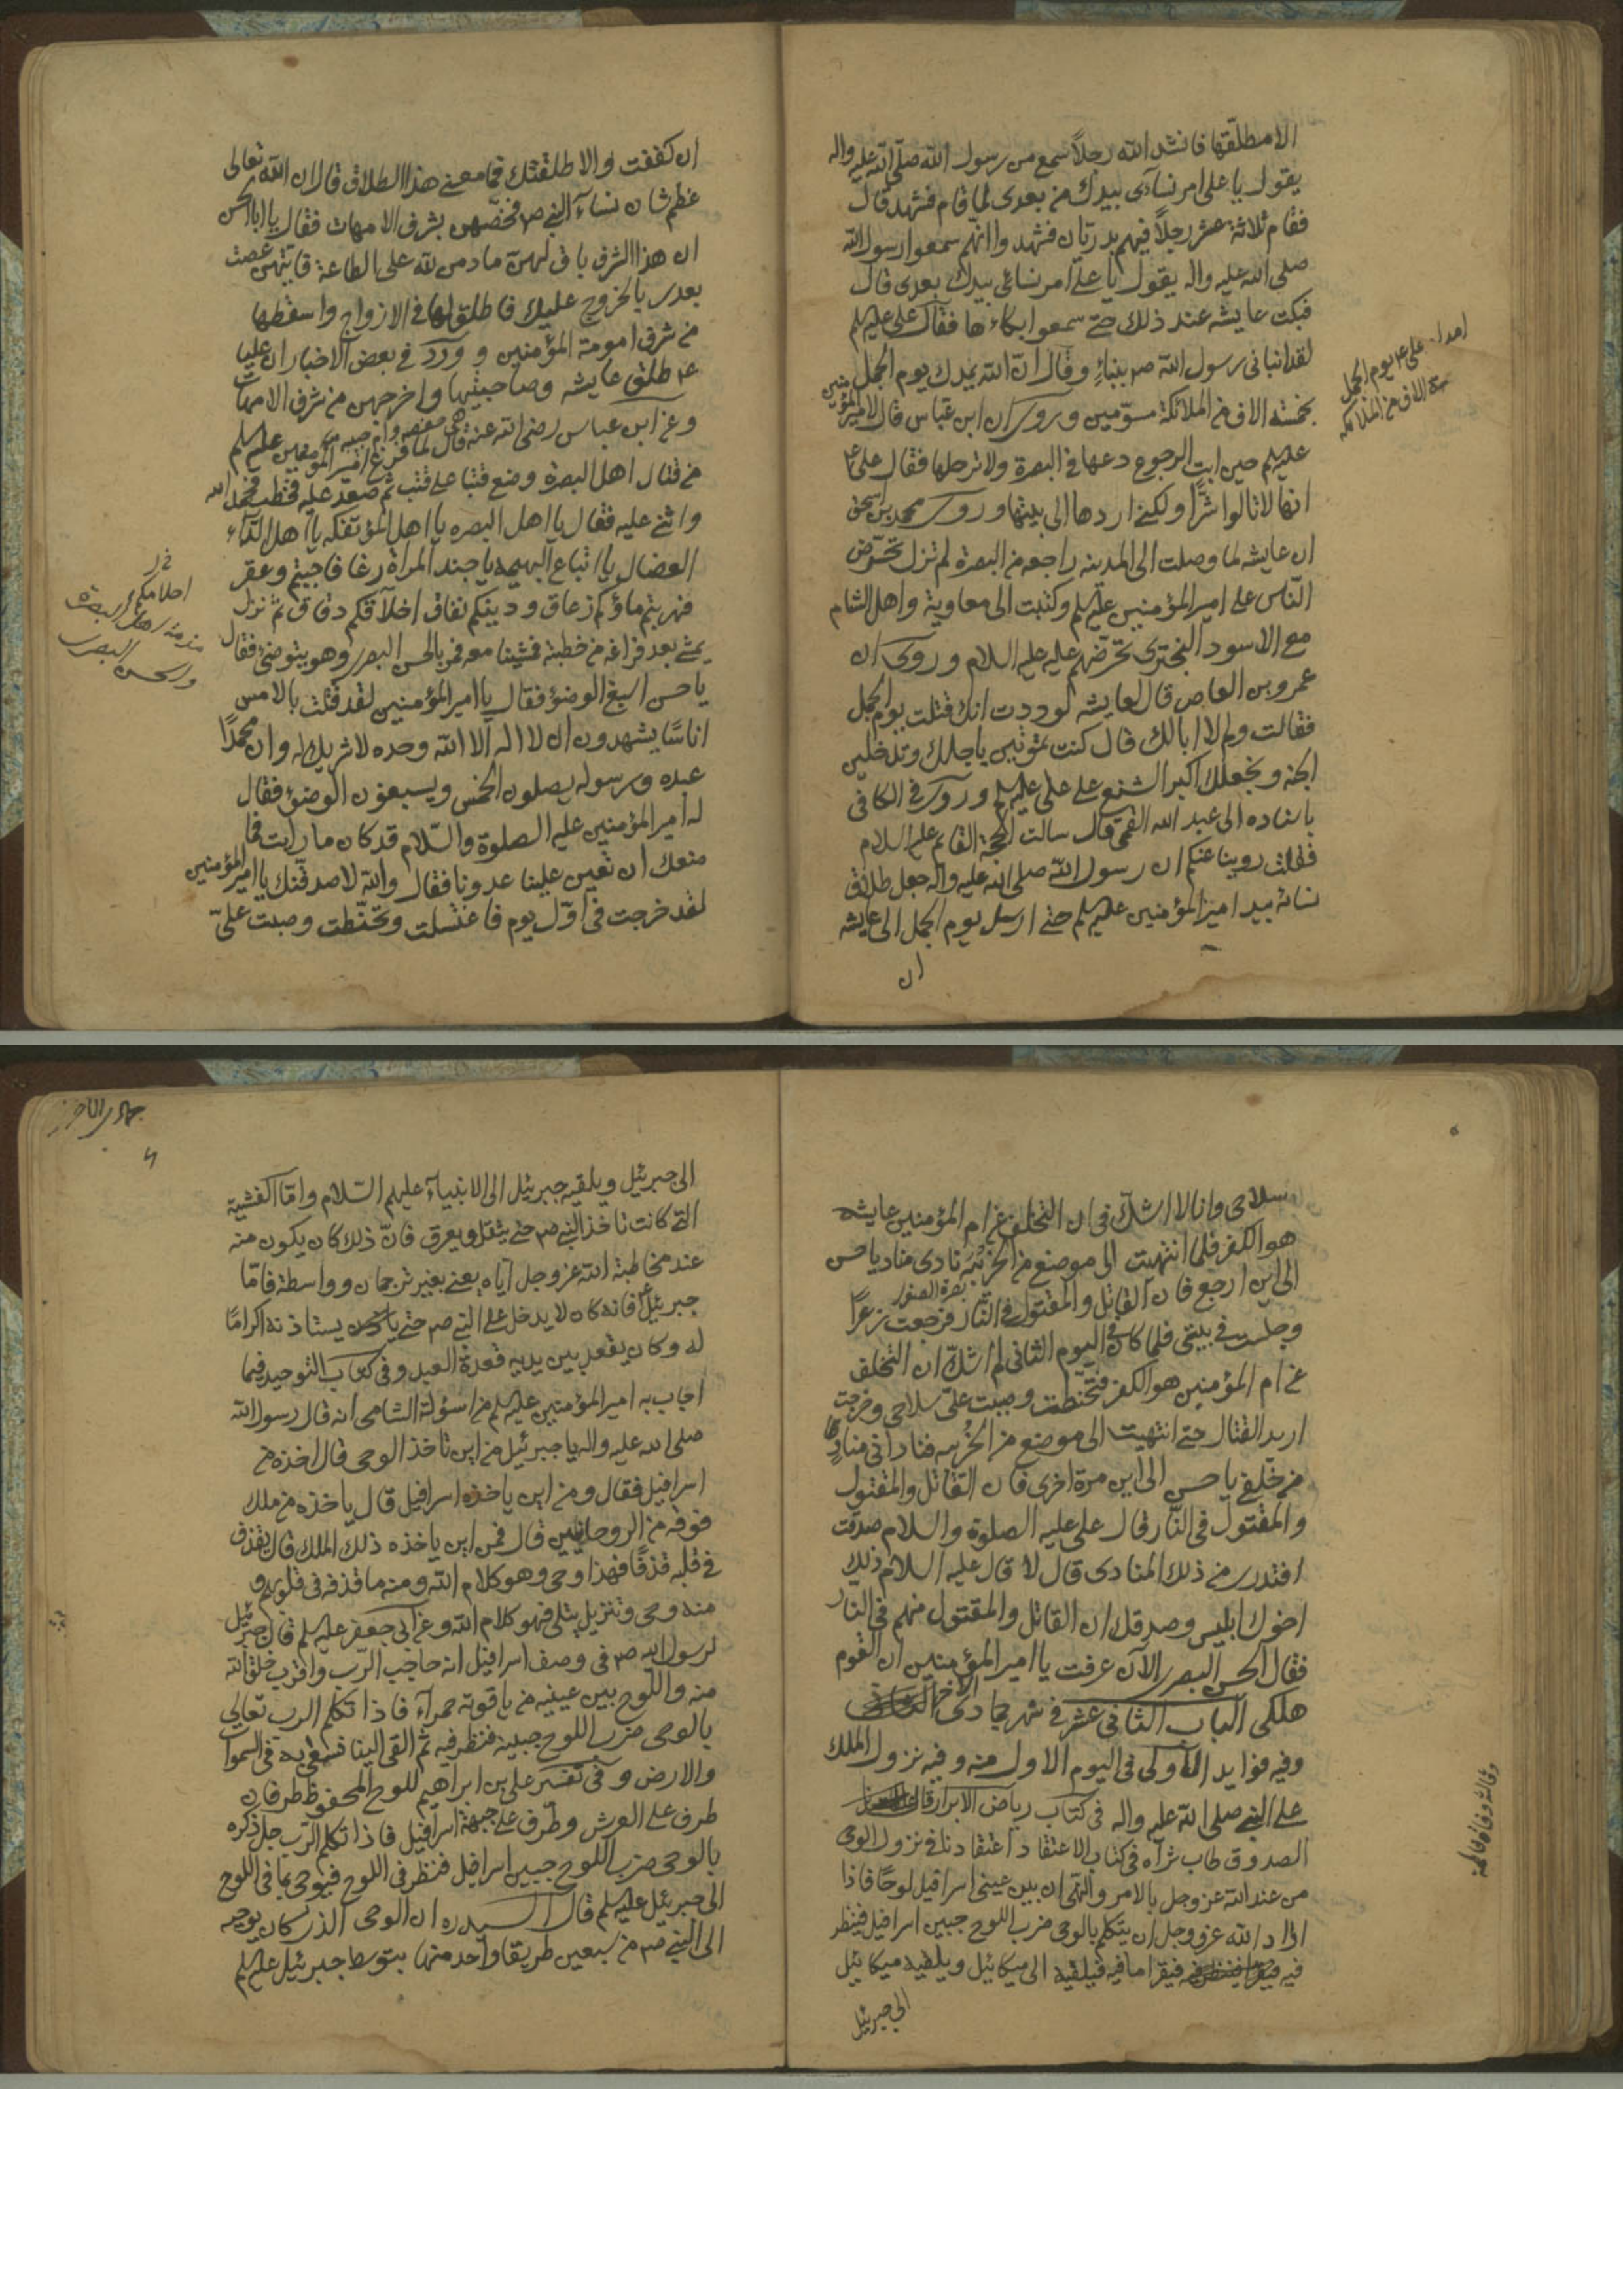 الا مطلقها فانشد الله رجلاً سمع من رسول الله صلى الله عليه واله
يقول يا على امر نسآئى بيدك من بعدى لما قام فشهد قال
فقام ثلاثة عشر رجلاً فيهم بدريان فشهدوا انهم سمعوا رسول الله
صلى الله عليه واله يقول يا على امر نسائى بيدك بعدى قال
فبكت عايشه عند ذلك حتى سمعوا بكاءها فقال على عليه لم
لقد انبانى رسول الله ص بنباءٍ وقال ان الله يمدك يوم الجمل
بخمسة الاف من الملائكة مسوّمين وروى ان ابن عباس قال لامير المؤمنين
عليه لم حين ابت الرجوع دعها فى البصرة ولا ترحلها فقال على ع
انها لا تالوا شرًّا ولكنى اردها الى بيتها وروى محمد بن اسحق
ان عايشه لما وصلت الى المدينه راجعه من البصرة لم تزل تحرّض
النّاس على امير المؤمنين عليه لم وكتبت الى معاوية واهل الشام
مع الاسود البخترى تحرّضهم عليه عليه السلام وروى ان
عمرو بن العاص قال لعايشه لوددت انك قتلت يوم الجمل
فقالت ولم لا ابالك قال كنت تموتين باجلك وتدخلين
الجنه ونجعلك اكبر الشنيع على على عليه لم وروى فى الكافى
باسناده الى عبد الله القمى قال سالت الحجة القائم عليه السلام
فقلت روينا عنكم ان رسول الله صلى الله عليه واله جعل طلاق
نسائه بيد امير المؤمنين عليه لم حتى ارسل يوم الجمل الى عايشه
ان
امداد على ع يوم الجمل
الاف من الملائكه
ان كففت والا طلقتك فما معنى هذا الطلاق قال ان الله تعالى
عظم شان نسآء النبى ص فخصّهن بشرف الامهات فقال يا ابا الحسن
ان هذا الشرف باق لهنّ ما دمن لله على الطاعة فايتهن عصت
بعدى بالخروج عليك فاطلق لها فى الازواج واسقطها
من شرف امومة المؤمنين و ورد فى بعض الاخبار ان عليا
ع طلق عايشه وصاحبتيها واخرجهن من شرف الامهات
وعن ابن عباس رضى الله عنه قال لما فرغ امير المؤمنين عليه لم
من قتال اهل البصرة وضع قتبا على قتب ثم صعد عليه فخطب فحمد الله
واثنى عليه فقال يا اهل البصره يا اهل المؤتفكه يا اهل الدآء
العضال يا اتباع البهيمه يا جند المراة رغا فاجبتم وعقر
فهربتم ماؤكم زعاق ودينكم نفاق اخلاقكم دقاق ثم نزل
يمشى بعد فراغه من خطبته فمشينا معه فمر بالحسن البصرى وهو يتوضئ فقال
يا حسن اسبغ الوضؤ فقال يا امير المؤمنين لقد قتلت بالامس
اناسًا يشهدون ان لا اله الا الله وحده لا شريك له وان محمدًا
عبده ورسوله يصلون الخمس ويسبغون الوضؤ فقال
له امير المؤمنين عليه الصلوة والسّلام قد كان ما رايت فما
منعك ان تعين علينا عدونا فقال والله لاصدقنك يا امير المؤمنين
لقد خرجت فى اوّل يوم فاغتسلت وتحنّطت وصبت علىّ
مذمة اهل البصرة
والحسن البصرى
سلاحى وانا لا اشكّ فى ان التخلف عن ام المؤمنين عايشه
هو الكفر فلما انتهيت الى موضع من الخريبه نادى مناد يا حسن
الى اين ارجع فان القاتل والمقتول فى النار فرجعت
وجلست فى بيتى فلما كان فى اليوم الثانى لم اشكّ ان التخلف
عن ام المؤمنين هو الكفر فتحنّطت وصبت علىّ سلاحى وخرجت
اريد القتال حتى انتهيت الى موضع من الخريبه فنادانى منادٍ
من خلفى يا حسن الى اين مرة اخرى فان القاتل والمقتول
والمقتول فى النّار قال على عليه الصلوة والسلام صدقت
افتدرى من ذلك المنادى قال لا قال عليه السلام ذلك
اخوك ابليس وصدقك ان القاتل والمقتول منهم فى النّار
فقال الحسن البصرى الآن عرفت يا امير المؤمنين ان القوم
هلكى الباب الثانى عشر فى شهر جمادى الاخرى
وفيه فوايد الاولى فى اليوم الاول منه وفيه نزول الملك
على النبى صلى الله عليه واله فى كتاب رياض الابرار قال
الصدوق طاب ثراه فى كتاب الاعتقاد اعتقادنا فى نزول الوحى
من عند الله عز وجل بالامر والنهى ان بين عينى اسرافيل لوحًا فاذا
اراد الله عز وجل ان يتكلم بالوحى ضرب اللوح جبين اسرافيل فينظر
فيه فيقرا ما فيه فيلقيه الى ميكائيل ويلقيه ميكائيل
الى جبرئيل
جمادى الاخر
الى جبرئيل ويلقيه جبرئيل الى الانبيآء عليهم السّلام وامّا الغشية
التى كانت تاخذ النبى ص حتى يثقل ويعرق فانّ ذلك كان يكون منه
عند مخاطبة الله عز وجل اياه يعنى بغير ترجمان وواسطة فامّا
جبرئيل فانه كان لا يدخل على النبى ص حتى يستاذنه اكرامًا
له وكان يقعد بين يديه قعدة العبد وفى كتاب التوحيد فيما
اجاب به امير المؤمنين عليه لم من اسؤلة الشامى انه قال رسول الله
صلى الله عليه واله يا جبرئيل من اين تاخذ الوحى قال اخذه من
اسرافيل فقال ومن اين ياخذه اسرافيل قال ياخذه من ملك
فوقه من الروحانيين قال فمن اين ياخذه ذلك الملك قال يقذف
فى قلبه قذفًا فهذا وحى وهو كلام الله ومنه ما قذفه فى قلوبهم و
منه وحى وتنزيل يتلى فهو كلام الله وعن ابى جعفر عليه لم قال جبرئيل
لرسول الله ص فى وصف اسرافيل انه حاجب الرّب واقرب خلق الله
منه واللّوح بين عينيه من ياقوته حمرآء فاذا تكلم الرب تعالى
بالوحى ضرب اللوح جبينه فنظر فيه ثم القى الينا فنسعى به فى السموات
والارض و فى تفسير على بن ابراهيم للوح المحفوظ طرفان
طرف على العرش وطرف على جبهة اسرافيل فاذا تكلم الرّب جل ذكره
بالوحى ضرب اللوح جبين اسرافيل فنظر فى اللوح فيوحى بما فى اللوح
الى جبرئيل عليه لم قال السيد ره ان الوحى الذى كان يوجه
الى النبى ص من سبعين طريقا واحد منها بتوسط جبرئيل عليه لم